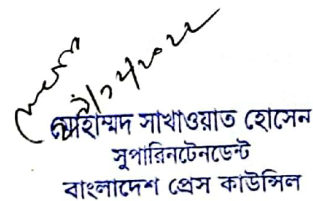 মোহাম্মদ সাখাওয়াত হোসেন
সুপারিনটেনডেন্ট
বাংলাদেশ প্রেস কাউন্সিল